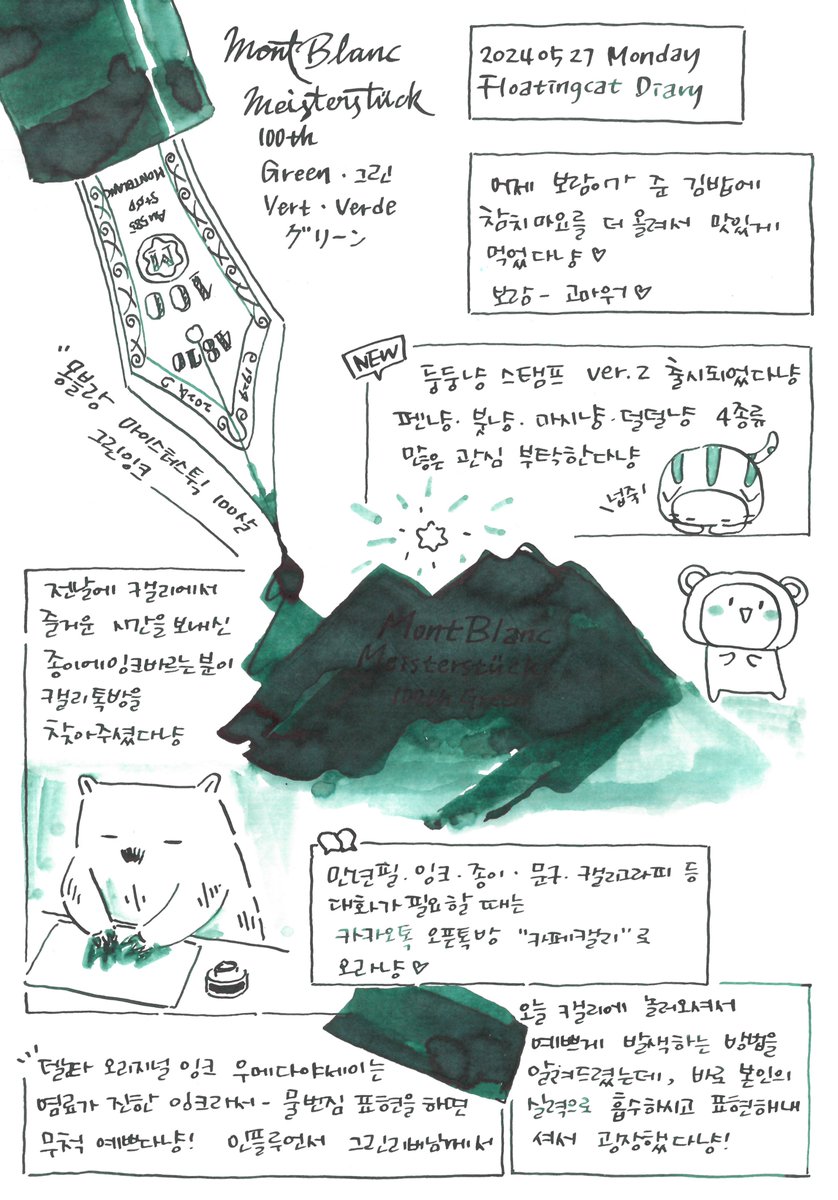 MontBlanc
Meisterstück
100th
Green · 그린
Vert · Verde
グリーン
20240527 Monday
Floatingcat Diary
MONTBLANC
Au585
M
100
4810
1924
2024
"몽블랑 마이스터스튁 100살
그린잉크
어제 보람이가 준 김밥에
참치마요를 더 올려서 맛있게
먹었다냥♡
보람- 고마워♡
NEW
둥둥냥 스탬프 ver.2 출시되었다냥
펜냥·붓냥·마시냥·덜덜냥 4종류
많은 관심 부탁한다냥
넙죽!
전날에 캘리에서
즐거운 시간을 보내신
종이에잉크바르는분이
캘리톡방을
찾아주셨다냥
MontBlanc
Meisterstück
100th Green
만년필·잉크·종이·문구·캘리그라피 등
대화가 필요할 때는
카카오톡 오픈톡방 "카페캘리"로
오라냥♡
델타 오리지널 잉크 우메다야세이는
염료가 진한 잉크라서- 물번짐 표현을 하면
무척 예쁘다냥! 인플루언서 그린리버님께서
오늘 캘리에 놀러와셔서
예쁘게 발색하는 방법을
알려드렸는데, 바로 본인의
실력으로 흡수하시고 표현해내
셔서 굉장했다냥!